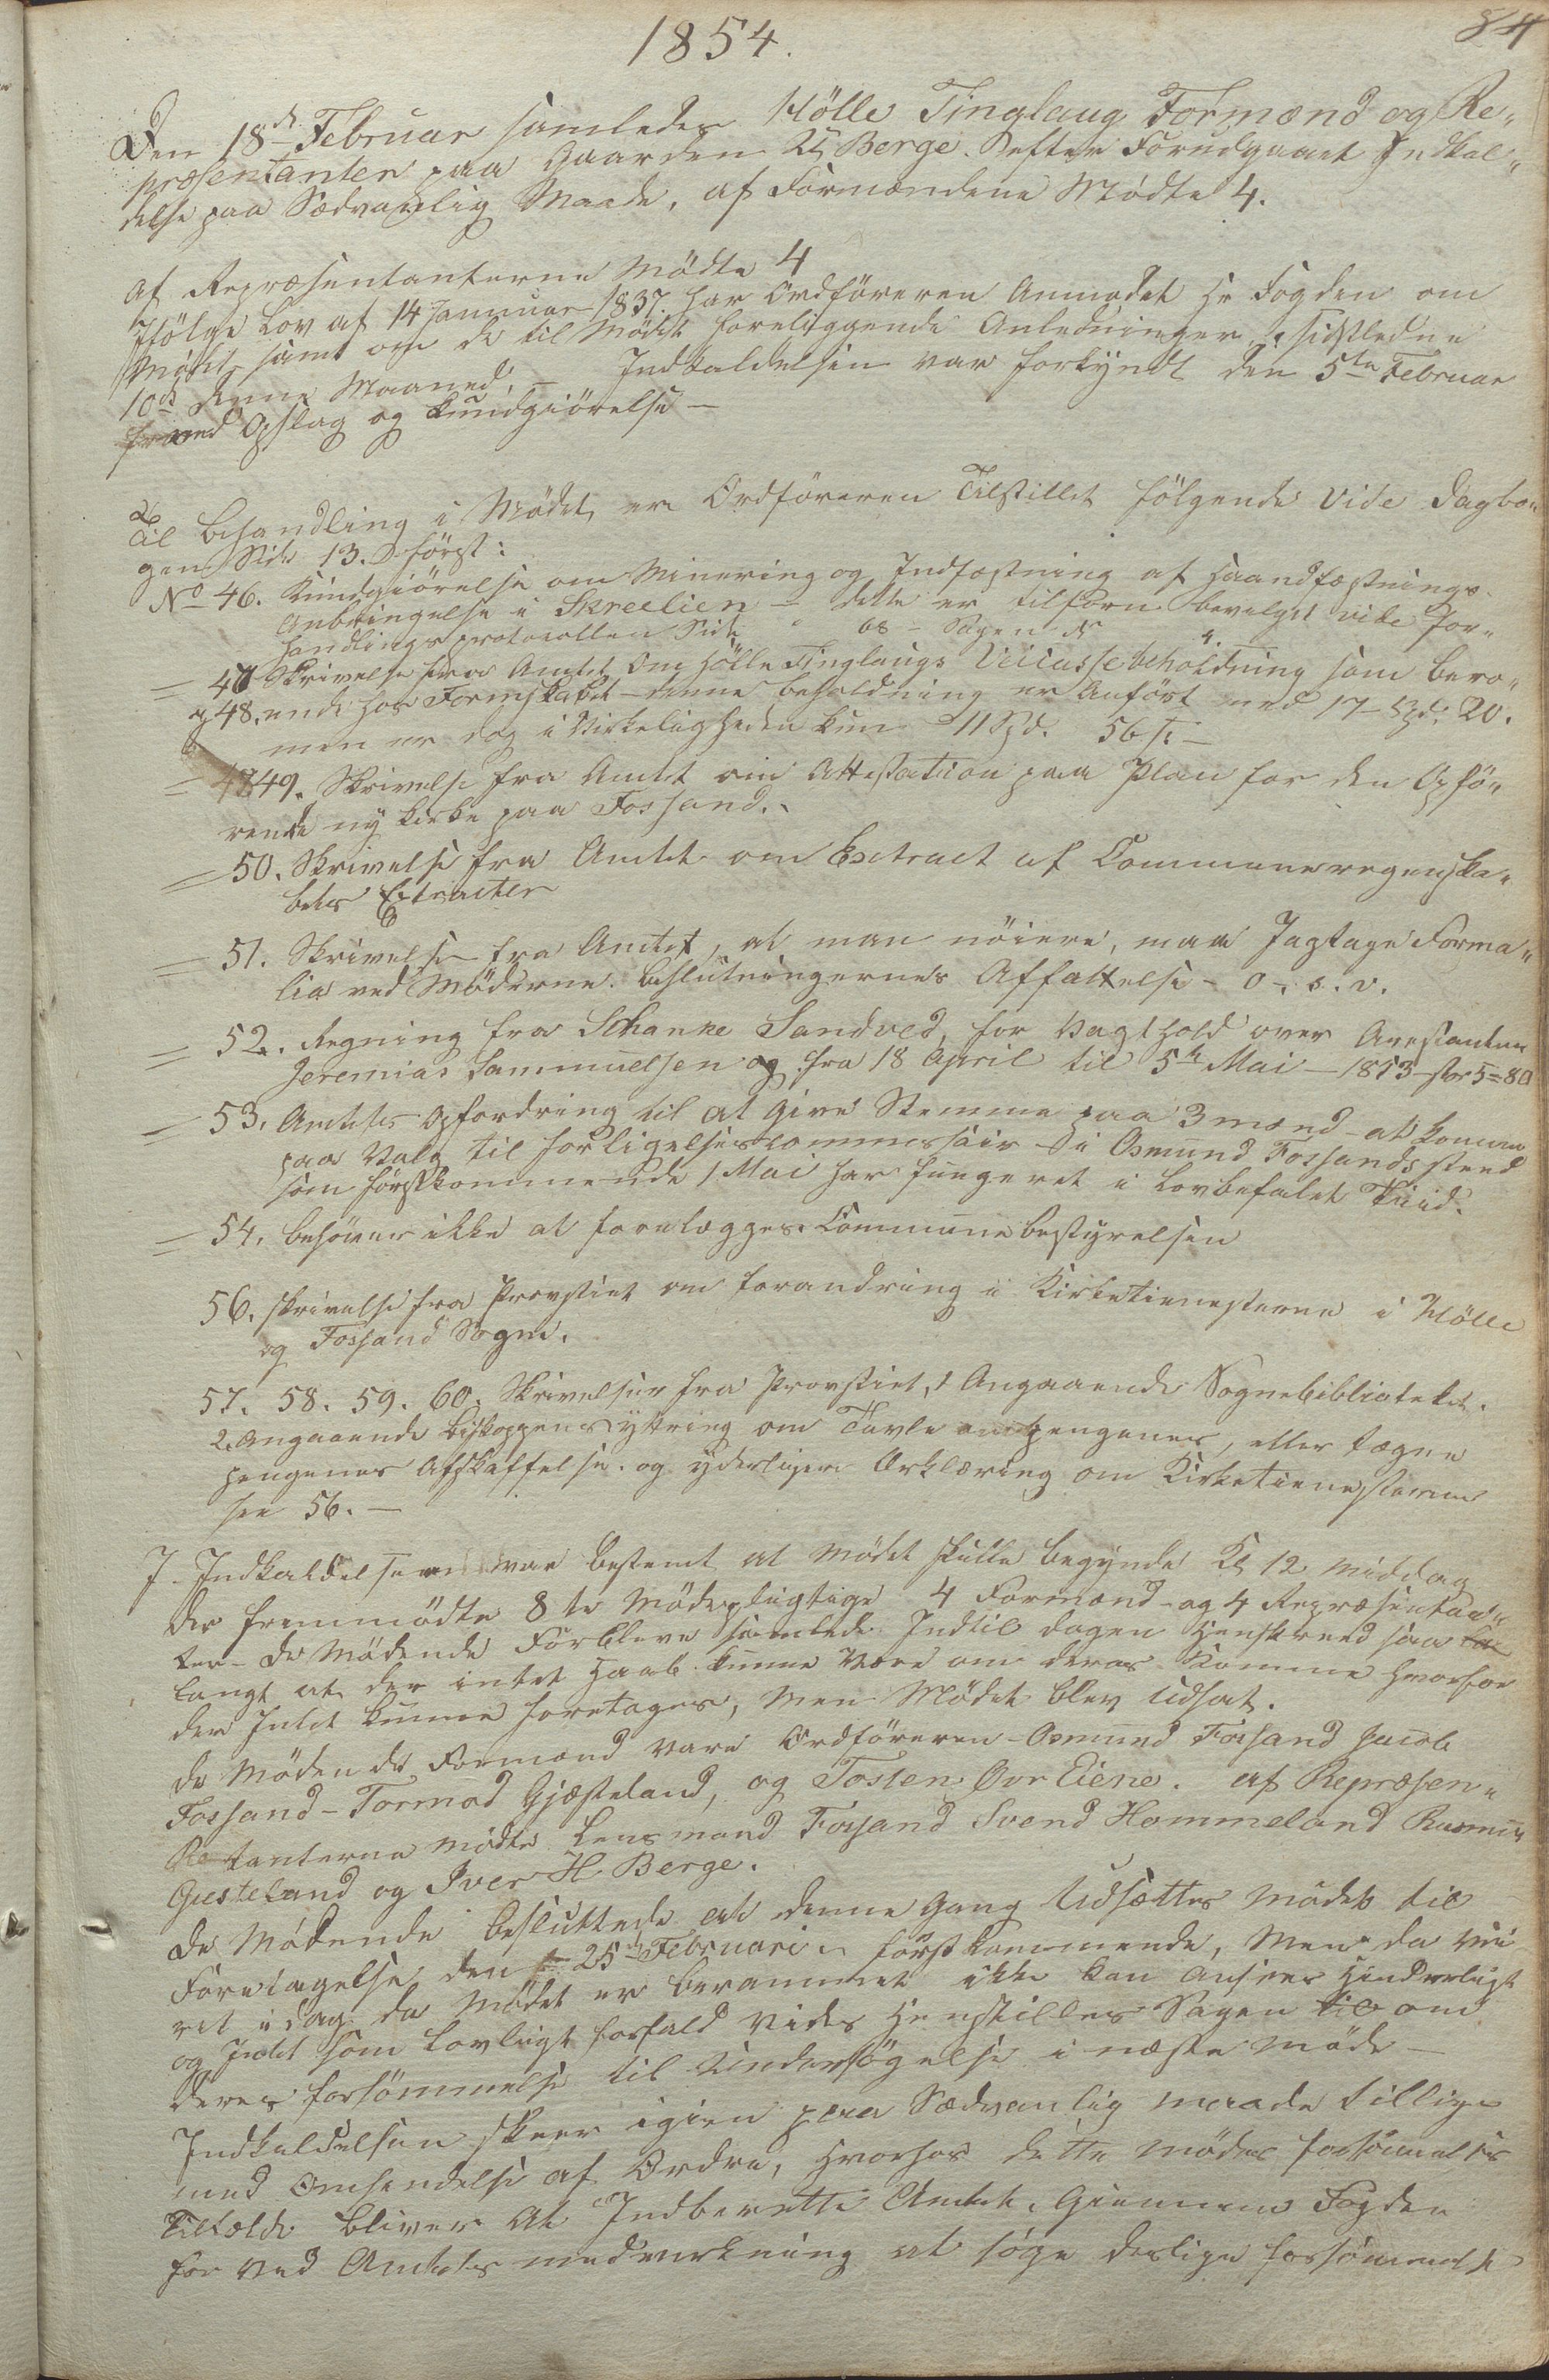 84
1854.
Den 18d Februar samledes Hölle Tinglaug Formænd og Re„
præsentanter paa Gaarden Berge. efter Forudgaaet Indkal„
delse paa Sædvanlig Maade, af Formændene Mödte 4.
af Repræsentanterne Mödte 4
Ifölge Lov af 14 Januar 1837 har Ordföreren Anmodet Hr Fogden om
Mödet samt om de til Mödet foreliggende Anledninger, sidstledne
10de denne Maaned. – Indkaldelsen var forkyndt den 5te Februar
ved Opslag og kundgiörelse –
Til Behandling i Mödet er Ordföreren Tilstillet fölgende vide Dagbo„
gen Side 13. först:
No 46. Kundgiörelse om Minering og Indfæstning af Haandfæstnings-
Anbringelse i Skreelien – dette er tilforn bevilget vide For„
handlingsprotocollen Side 68 – Sagen No 4.
= 47 Skrivelse fra Amtet Om Hölle Tinglaugs Veicassebeholdning som bero„
og 48. ende hos Formskabet – denne beholdning er Anfört med 17 Spd. 20.
men er dog i Virkeligheden kun 11 Spd. 56 s. –
= 49. Skrivelse fra Amtet om Attestation paa Plan for den Opfö„
rende ny Kirke paa Fossand.
= 50. Skrivelse fra Amtet om Extract af Communeregnska„
bets Extracter
= 51. Skrivelse fra Amtet, at man nöiere, maa Jagtage Forma„
lia ved Möderne. beslutningernes Affattelse – o. s. v.
= 52. Regning fra Schanke Sandved, for Vagthold over Arrestanten
Jeremias Sammuelsen og fra 18 April til 5te Mai – 1853 – stor 5=80
= 53. Amtets Opfordring til at Give Stemme paa 3 mænd – at komme
paa Valg til Forligelsescommissair – i Osmund Fossands sted
som förstkommende 1 Mai har fungeret i Lovbefalet Tiid.
= 54. behöver ikke at forelægges Communebestyrelsen
56. skrivelse fra Provstiet om forandring i Kirketienesterne i Hölle
og Fossand Sogne.
57. 58. 59. 60. Skrivelser fra Provstiet, 1 Angaaende Sognebibliotekt.
2. Angaaende Biskoppens yttring om Tavle pengenes, eller tegne
pengenes Afskaffelse. og yderligere Erklæring om Kirketienesterne
see 56. –
I Indkaldelsen var bestemt at Mödet skulle begynde Kl 12 middag
der fremmödte 8te Mödepligtige 4 Formænd – og 4 Repræsentan„
ter – De Mödende Forbleve samlede Indtil dagen Henskreed saa
langt at der intet Haab kunne Være om deres Komme hvorfor
der Intet kunne foretages, Men Mödet blev Udsat.
De Mödende Formænd Vare Ordföreren – Osmund Fossand Jacob
Fossand – Tormod Gjesteland, og Tosten Övr Eiene. af Repræsen„
tanterne mödte Lensmand Fossand Svend Hommeland Rasmus
Giesteland og Iver H Berge.
De Mödende besluttede at denne Gang Udsættes Mödet til
Foretagelse den 25d Februari förstkommende, Men da Vei
ret i dag da Mödet er berammet ikke kan Ansees Hinderligt
og Intet som Lovligt forfald vides Henstilles Sagen om
deres forsömmelse til Undersögelse i næste Möde –
Indkaldelsen skeer igien paa Sædvanlig maade tillige
med Omsendelse af Ordre, Hvorhos dette Mödes forsömmelses
Tilfælde bliver At Indberette Amtet. Giennem Fogden
for ved Amtets medvirkning at söge deslige forsömmelse